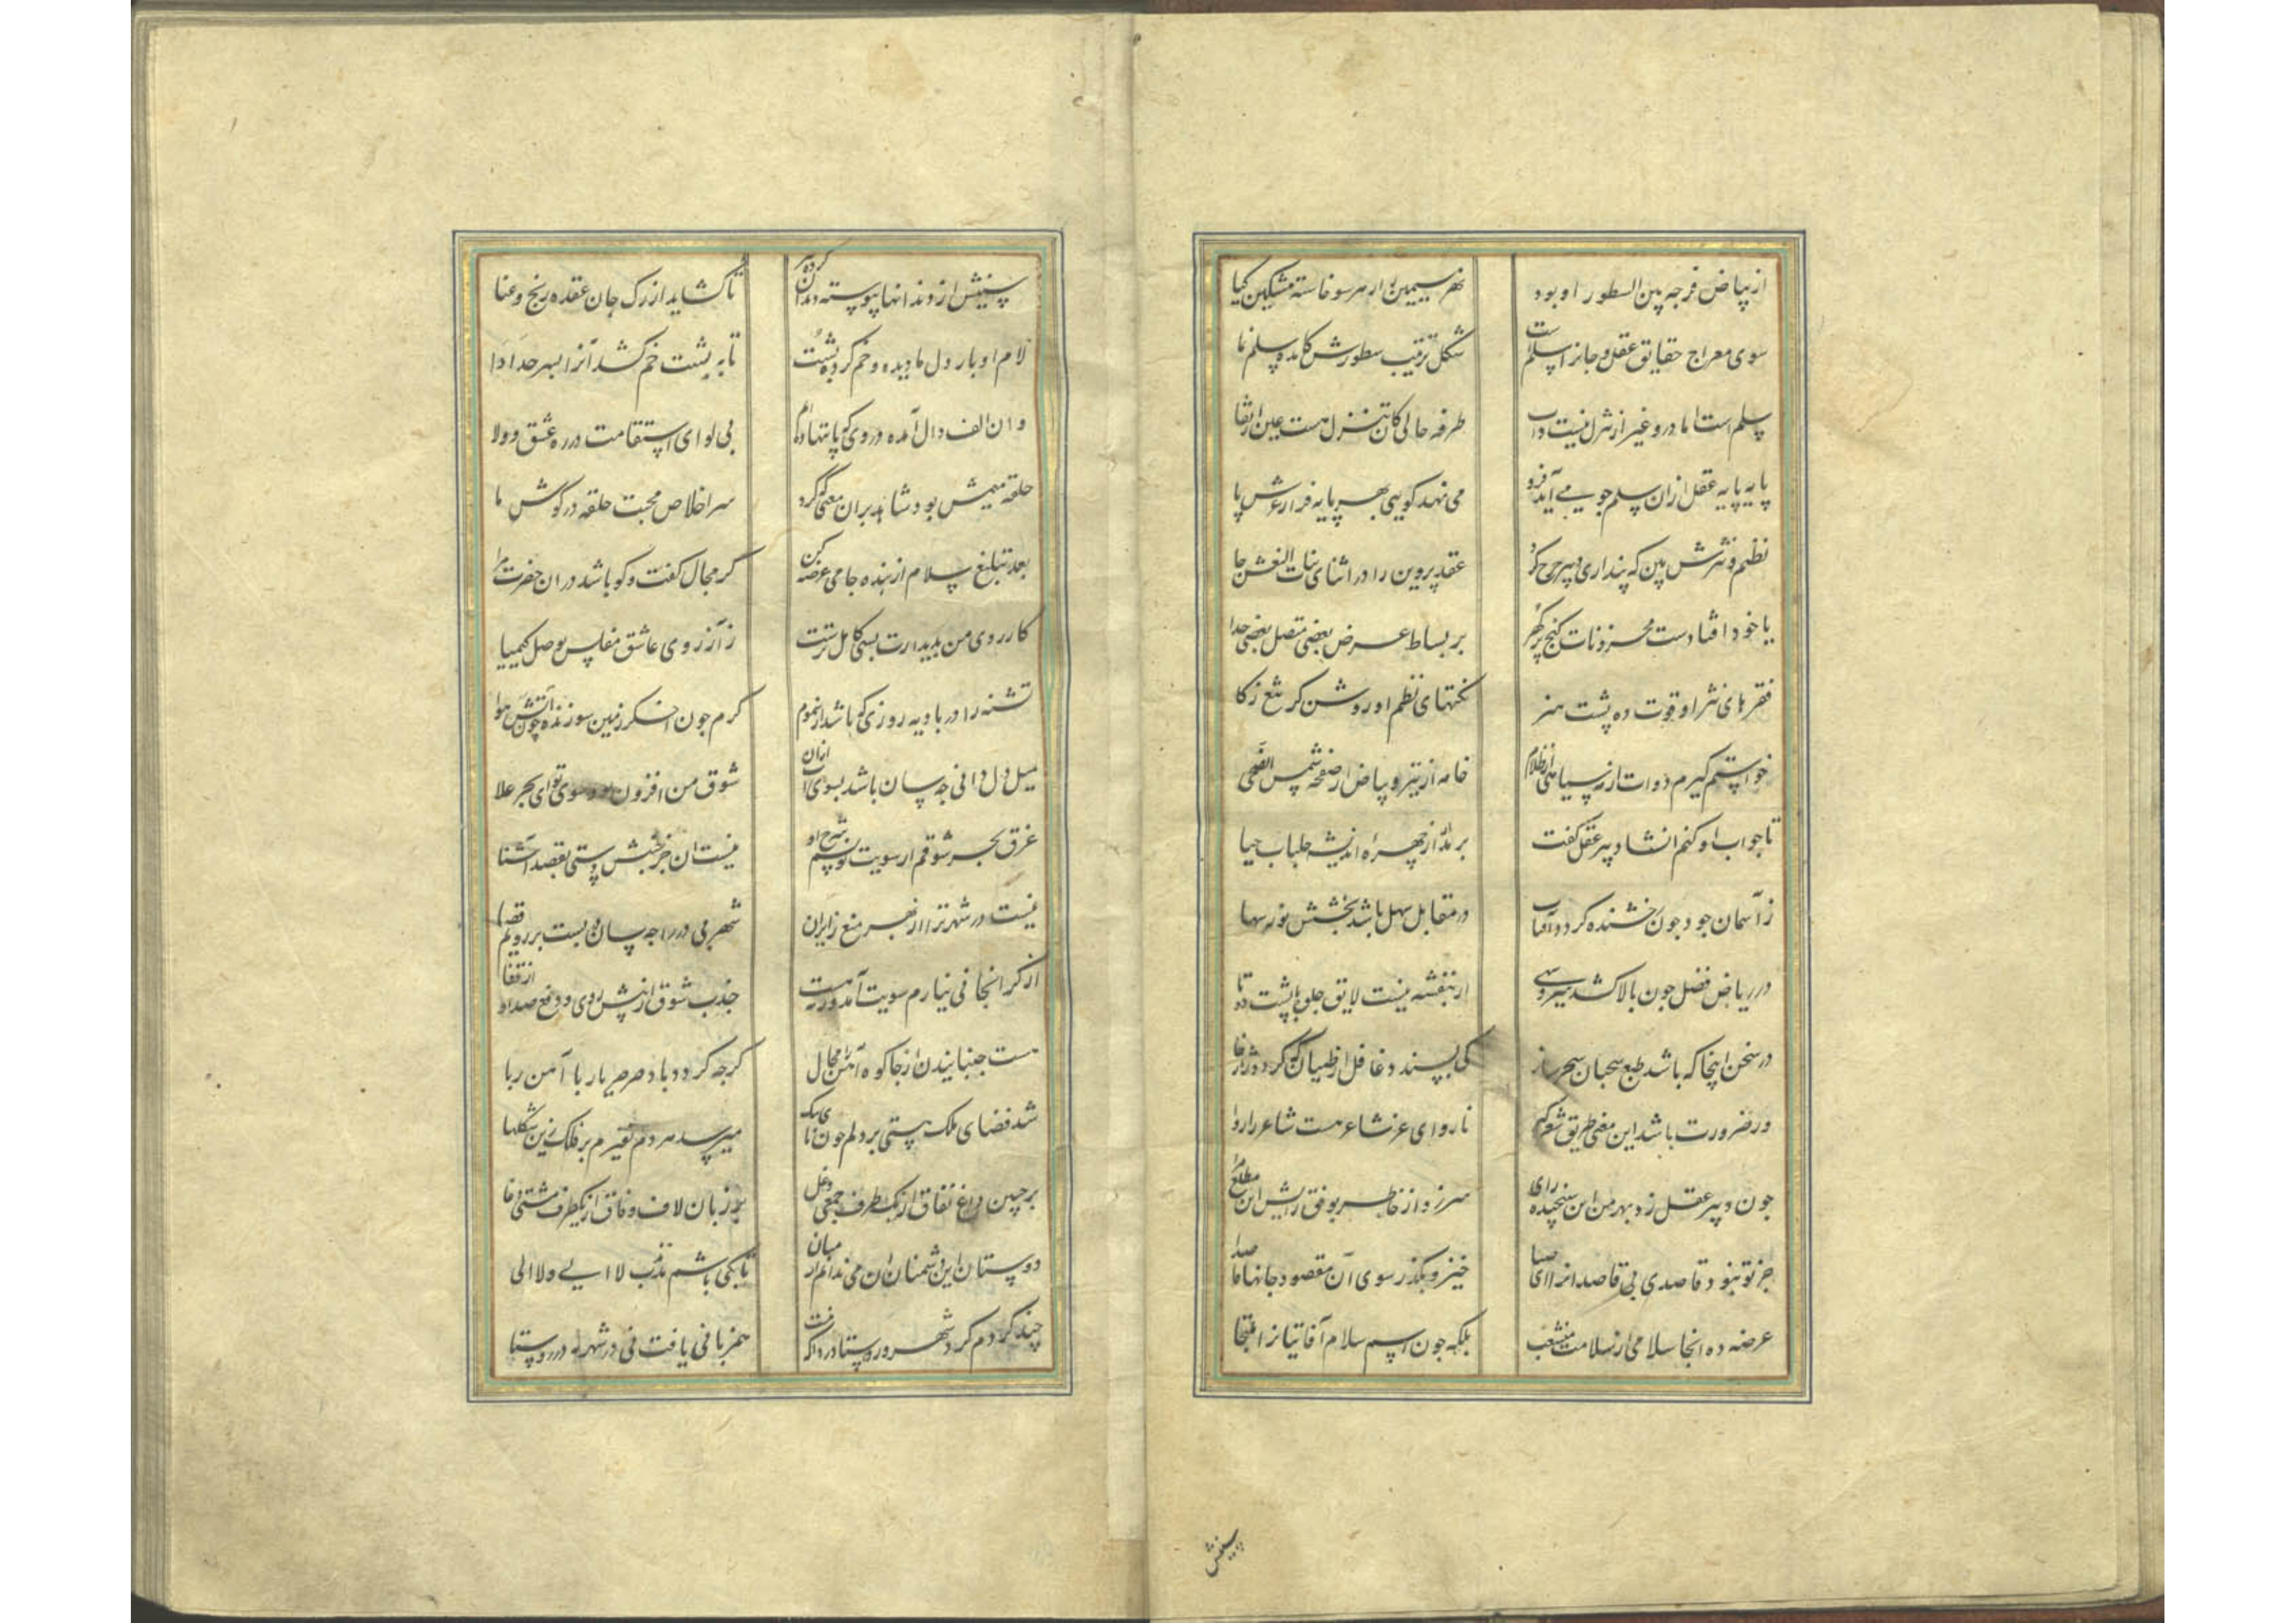 از بیاض فرجه بین السطور او بود
نهر سیمین از هر سو خاسته مشکین کیا
سوی معراج حقایق عقل و جانرا سلمست
شکل ترتیب سطورش کامده سلم نما
سلم است اما درو غیر از تنزل نیست داب
طرفه حالی کان تنزل هست عین ارتقا
پایه پایه عقل ازان سلم جو می آید فرو
می نهد کویی بهر پایه فراز عرش پا
نظم و نثرش بین که پنداری دبیر جرخ کرد
عقد پروین را در اثنای بنات النعش جا
یا خود افتادست مخزونات کنج پر کهر
بر بساط عرض بعضی متصل بعضی جدا
فقرهای نثر او قوت ده پشت هنر
نکتهای نظم او روشن کر شمع زکا
خواستم کیرم دوات از سیاهی ظلام
خامه از تیر و بیاض از صفحه شمس الضحی
تا جواب او کنم انشا دبیر عقل کفت
بر مدار از چهره اندیشه جلباب حیا
ز آسمان جود جون رخشنده کردد آفتاب
در مقابل سهل باشد بخشش نور سها
در ریاض فضل جون بالا کشد سروسهی
از بنفشه نیست لایق جلوه با پشت دوتا
در سخن اینجا که باشد طبع سحبان سحر ساز
کی پسندد عاقل از طیان که کردد ژاژخا
ور ضرورت باشد این معنی طریق شعر کیر
ناروای غز نشاعر هست شاعر را روا
جون دبیر عقل زد بهر من این سنجیده رای
سر زد از خاطر بوفق رایش این مطلع مرا
جز تو نبود قاصدی بی قاصد انرا ای صبا
خیز و بکذر سوی آن مقصود جانها صدا
عرضه ده انجا سلامی از سلامت منشعب
بلکه جون اسم سلام آفاتیانرا ملتجا
سینش
سینش از دندانها پیوسته دندان کرده تیز
تا کشاید از رک جان عقده رنج و عنا
لام او بار دل ما دیده و خم کرده پشت
تا به پشت خم کشد آنرا بسر حد ادا
وان الف دال آمده در وی که پا ننهاده ام
بی لوای استقامت در ره عشق و ولا
حلقه میمش بود شاهد بران معنی که کرد
سر اخلاص محبت حلقه در کوش ما
بعد تبلیغ سلام از بنده جامی عرضه کن
کر مجال کفت و کو باشد دران حضرت ترا
کارزوی من بدیدارت بسی کامل ترست
ز آرزوی عاشق مفلس بوصل کیمیا
تشنه را در بادیه روزی که باشد از سموم
کرم جون اخکر زمین سوزنده چون آتش هوا
میل دل دانی جه سان باشد بسوی آب ازان
شوق من افزون بود سوی تو ای بحر علا
غرق بحر شوقم از سویت نویسم شرح او
نیست ان جز جنبش دستی بقصد آشنا
نیست در شهر ترا از بهر منع زایران
شهر بی در را جه سان در بست بر رویم قضا
از کرانجانی نیارم سویت آمد ور نه هست
جذب شوق از پیش روی و دفع صداد از قفا
هست جنبانیدن از جا کوه آهن را محال
کرجه کردد باد صرصر یار با آهن ربا
شد فضای ملک هستی بر دلم جون نای تنک
میرسد هر دم نفیرم بر فلک زین تنکنا
بر جبین داغ نفاق از یکطرف جمعی دغل
بر زبان لاف وفاق از یکطرف مشتی دغا
دوستان این دشمنان ان می ندانم در میان
تا بکی باشم مذبذب لا الی و لا الی
چند کردم کرد شهر و روستا دردا که رفت
همزبانی یافت نی در شهر نه در روستا